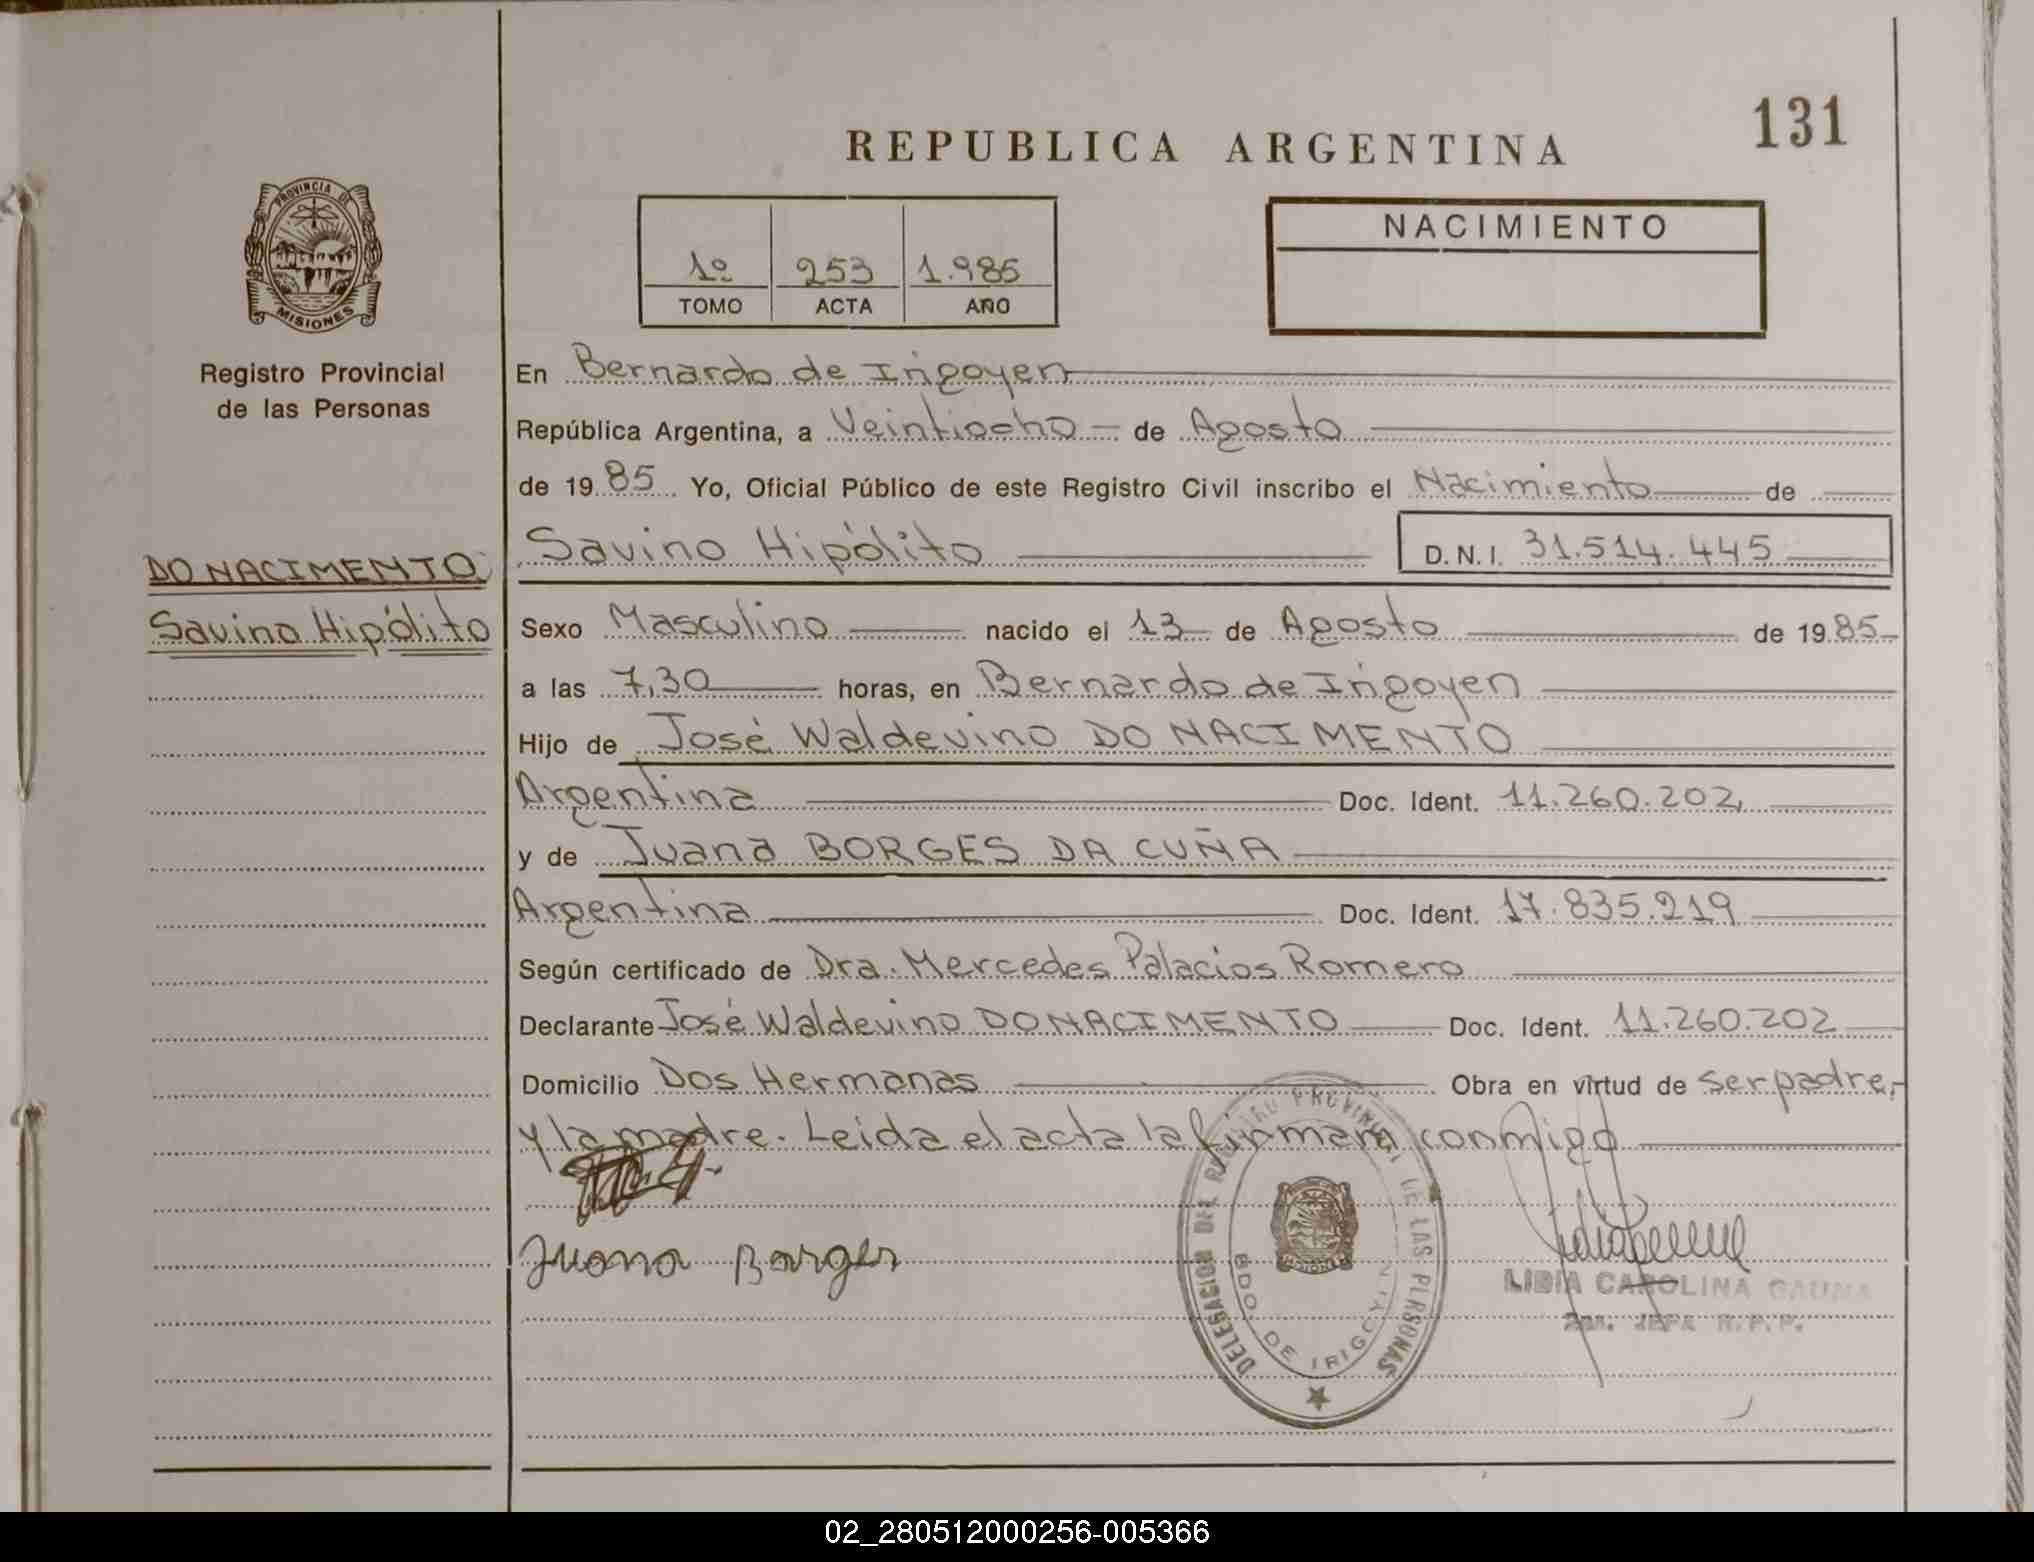 131
REPUBLICA ARGENTINA
PROVINCIA DE
MISIONES
Registro Provincial
de las Personas
1º 253 1.985
TOMO ACTA AÑO
NACIMIENTO
En Bernardo de Irigoyen
República Argentina, a Veintiocho de Agosto
de 1985. Yo, Oficial Público de este Registro Civil inscribo el Nacimiento de
Savino Hipólito D.N.I. 31.514.445
DO NACIMENTO
Savino Hipólito
Sexo Masculino nacido el 13 de Agosto de 1985
a las 7,30 horas, en Bernardo de Irigoyen
Hijo de José Waldevino DO NACIMENTO
Argentina Doc. Ident. 11.260.202
y de Juana BORGES DA CUÑA
Argentina Doc. Ident. 17.835.219
Según certificado de Dra. Mercedes Palacios Romero
Declarante José Waldevino DO NACIMENTO Doc. Ident. 11.260.202
Domicilio Dos Hermanas Obra en virtud de ser padre,
y la madre. Leida el acta la firman conmigo
Juana Borges
DELEGACION DEL REGISTRO PROVINCIAL DE LAS PERSONAS
BDO. DE IRIGOYEN
LIDIA CAROLINA GAUNA
JEFA R.P.P.
02_280512000256-005366